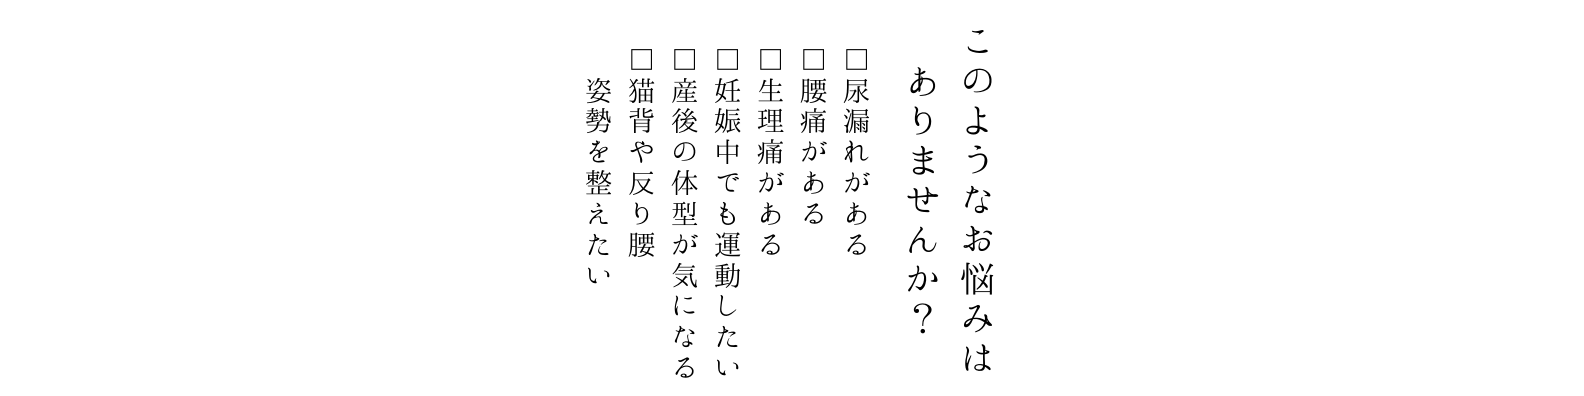 このようなお悩みは
ありませんか？
□尿漏れがある
□腰痛がある
□生理痛がある
□妊娠中でも運動したい
□産後の体型が気になる
□猫背や反り腰
姿勢を整えたい